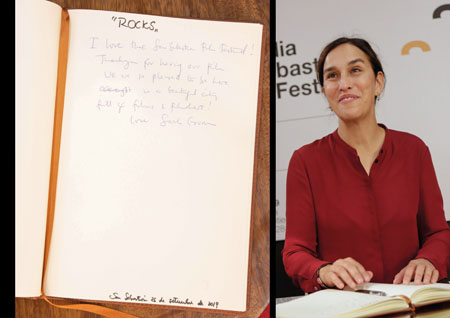 "ROCKS"
I love the San Sebastián Film Festival!
Thankyou for having our film.
We are so pleased to be here
in a beautiful city
full of films & pintxos!
love Sarah Gavron
San Sebastián 25 de setiembre de 2019
dia
bast
Festi